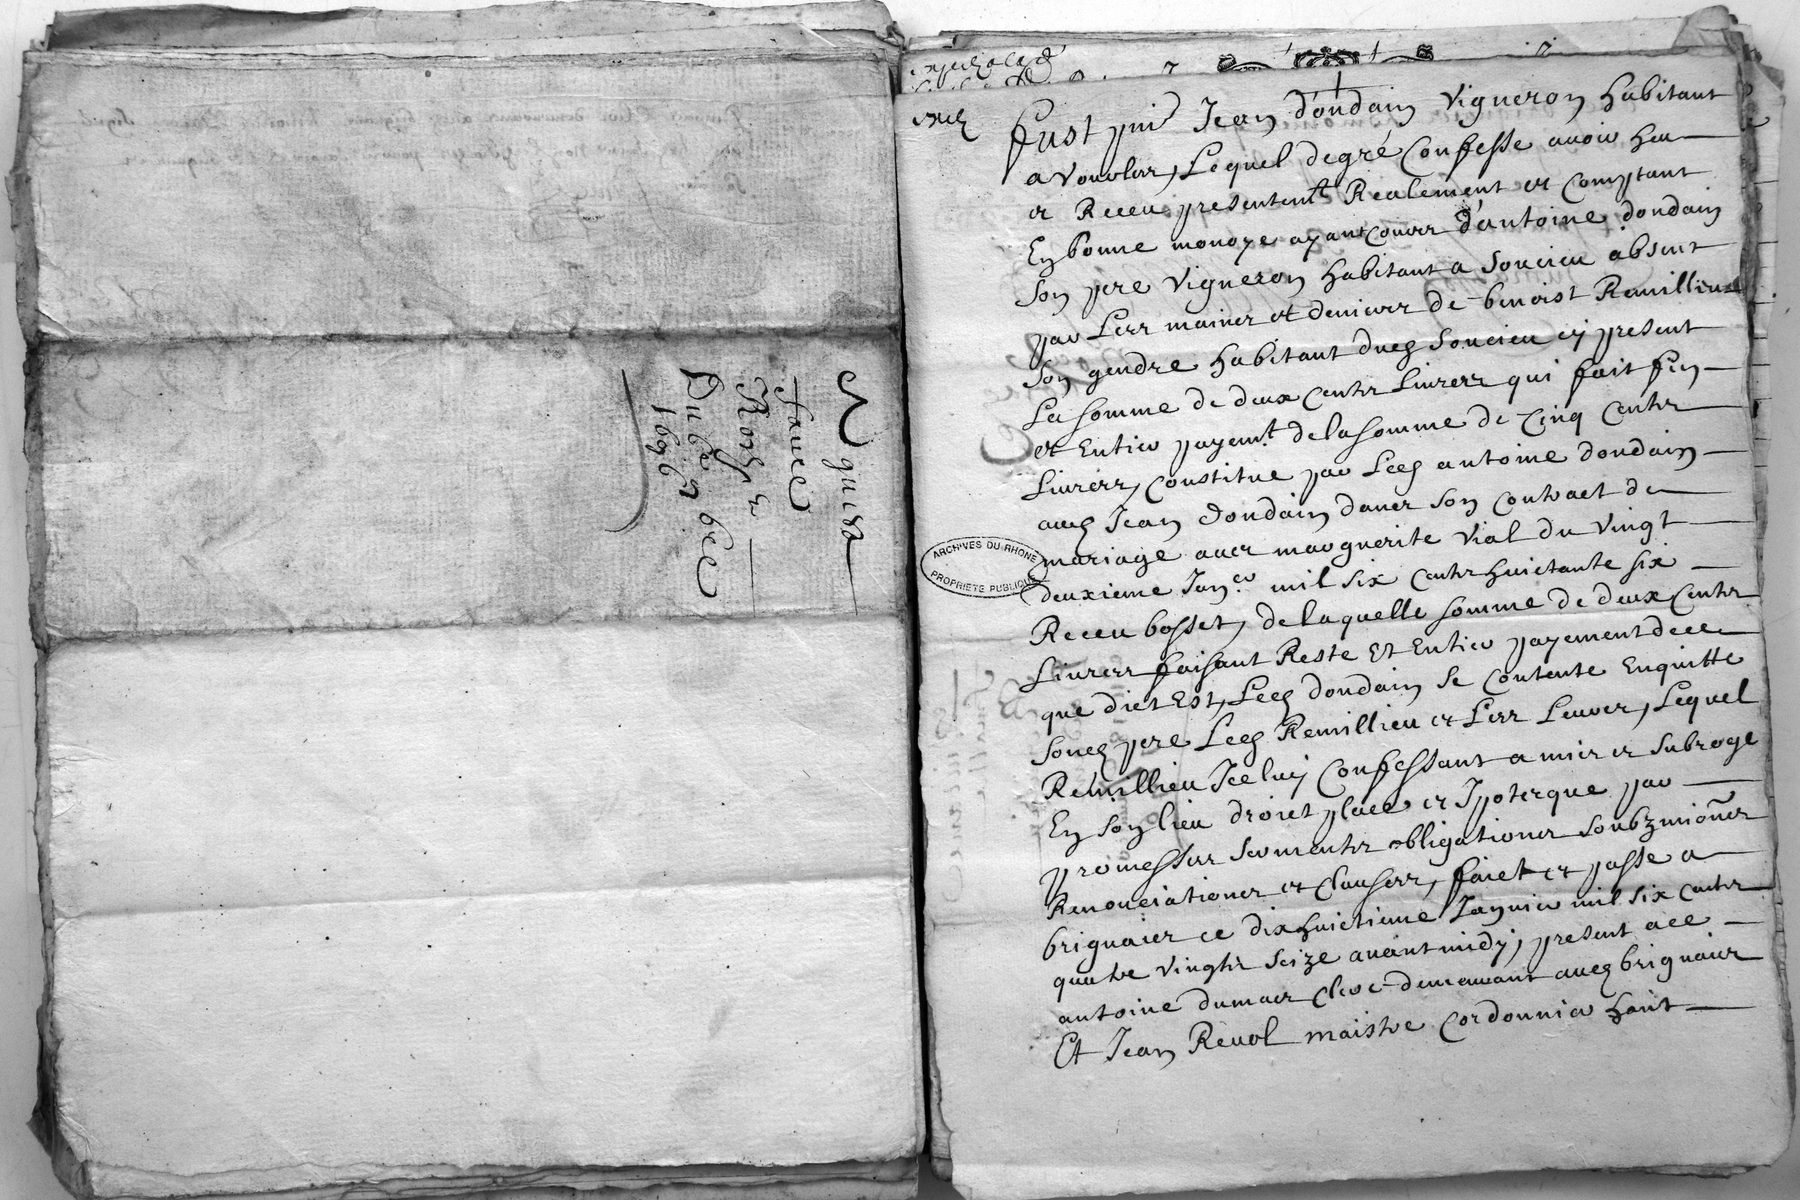 Quitta
Du 6e 9bre
1696
ARCHIVES DU RHONE
PROPRIETE PUBLIQUE
Fust pnt Jean dondain vigneron habitant
a vourler, Lequel degré Confesse avoir heu
et Receu presentemt Realement et Comptant
En bonne monoye ayant Cours d'antoine dondain
son pere vigneron habitant a Soucieu absent
par Les mains et deniers de benoist Remillieu
son gendre habitant dud Soucieu cy present
La somme de deux Cents Livres qui fait fin
et Entier payemt de la somme de Cinq Cents
Livres, Constitué par Led antoine dondain
aud Jean dondain dans son Contract de
mariage avec marguerite Vial du Vingt
deuxieme Janer mil six Cents huictante six
Receu bosset, de laquelle somme de deux Cents
Livres faisant Reste Et Entier payement de ce
que dict Est, Led dondain se Contente Enquitte
sond pere Led Remillieu et Les Leurs, Lequel
Remillieu Iceluy Confessant a mis et subroge
En son lieu droict place et Ipoteque par
promesses serments obligations soubzmions
Renonciations et Clauses, faict et passe a
brignais ce dixhuictieme Janvier mil six Cents
quatre vingts seize avant midy, present a ce
antoine dumas Clerc demeurant aud brignais
Et Jean Revol maistre Cordonnier habit